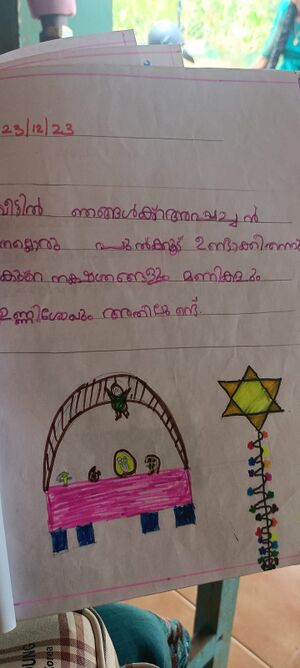 23/12/23
വീട്ടിൽ ഞങ്ങൾക്ക് അപ്പച്ചൻ
നല്ലൊരു പുൽക്കൂട് ഉണ്ടാക്കിതന്നു
കുറെ നക്ഷത്രങ്ങളും മണികളും
ഉണ്ണിശോയും അതിലുണ്ട്.